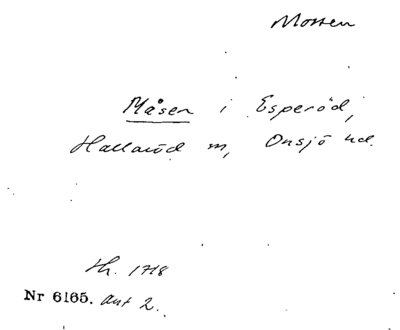 Mossen
Måsen i Esperöd,
Hallaröd sn, Onsjö hd.
th. 1718
Nr 6165. ant 2.